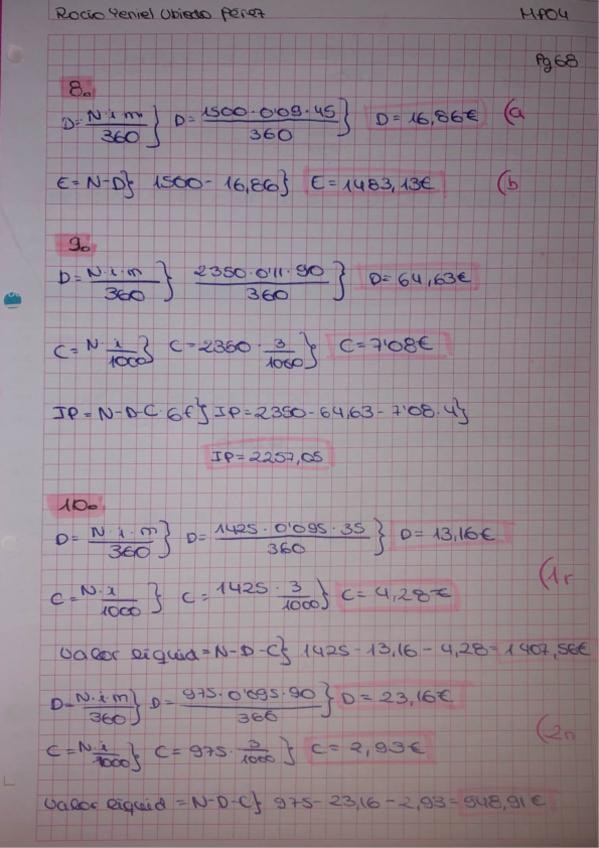 Rocío Yeniel Ubiedo Pérez MP04
Pg 68
8.
D = N·i·m/360} D = 1500·0'09·45/360} D = 16,86€ (a
E = N-D} 1500 - 16,86} E = 1483,13€ (b
9.
D = N·i·m/360} 2350·0'11·90/360} D = 64,63€
C = N·i/1000} C = 2360·3/1000} C = 7'08€
IP = N-D-C·6€} IP = 2350 - 64,63 - 7'08·4}
IP = 2257,05
10.
D = N·i·m/360} D = 1425·0'095·35/360} D = 13,16€
C = N·i/1000} C = 1425·3/1000} C = 4,28€ (1r
Valor líquid = N-D-C} 1425 - 13,16 - 4,28 = 1407,56€
D = N·i·m/360} D = 975·0'095·90/360} D = 23,16€
C = N·i/1000} C = 975·3/1000} C = 2,93€ (2n
Valor líquid = N-D-C} 975 - 23,16 - 2,93 = 948,91€